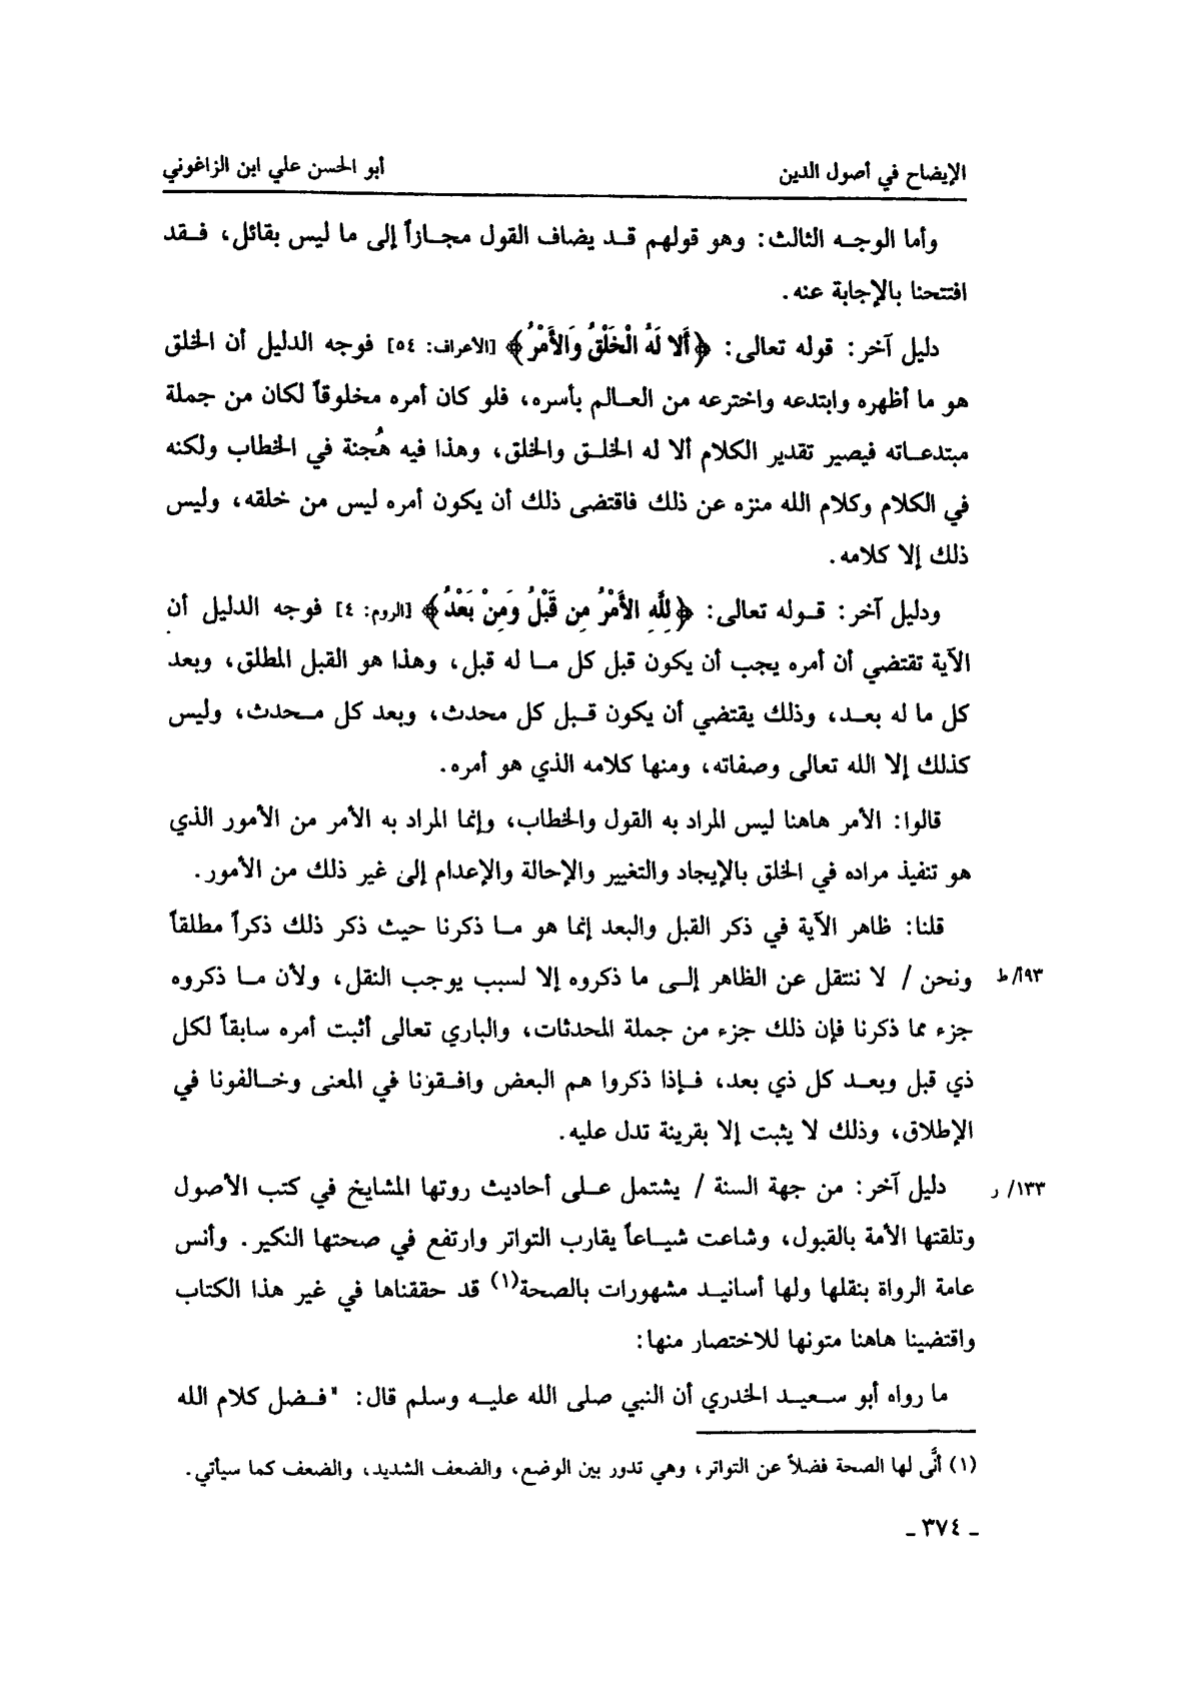 الإيضاح في أصول الدين
أبو الحسن علي ابن الزاغوني
وأما الوجه الثالث: وهو قولهم قد يضاف القول مجازاً إلى ما ليس بقائل، فقد
افتتحنا بالإجابة عنه.
دليل آخر: قوله تعالى: ﴿أَلا لَهُ الْخَلْقُ وَالأَمْرُ﴾ [الأعراف: ٥٤] فوجه الدليل أن الخلق
هو ما أظهره وابتدعه واخترعه من العالم بأسره، فلو كان أمره مخلوقاً لكان من جملة
مبتدعاته فيصير تقدير الكلام ألا له الخلق والخلق، وهذا فيه هُجنة في الخطاب ولكنه
في الكلام وكلام الله منزه عن ذلك فاقتضى ذلك أن يكون أمره ليس من خلقه، وليس
ذلك إلا كلامه.
ودليل آخر: قوله تعالى: ﴿لِلَّهِ الأَمْرُ مِن قَبْلُ وَمِنْ بَعْدُ﴾ [الروم: ٤] فوجه الدليل أن
الآية تقتضي أن أمره يجب أن يكون قبل كل ما له قبل، وهذا هو القبل المطلق، وبعد
كل ما له بعد، وذلك يقتضي أن يكون قبل كل محدث، وبعد كل محدث، وليس
كذلك إلا الله تعالى وصفاته، ومنها كلامه الذي هو أمره.
قالوا: الأمر هاهنا ليس المراد به القول والخطاب، وإنما المراد به الأمر من الأمور الذي
هو تنفيذ مراده في الخلق بالإيجاد والتغيير والإحالة والإعدام إلى غير ذلك من الأمور.
قلنا: ظاهر الآية في ذكر القبل والبعد إنما هو ما ذكرنا حيث ذكر ذلك ذكراً مطلقاً
ونحن / لا ننتقل عن الظاهر إلى ما ذكروه إلا لسبب يوجب النقل، ولأن ما ذكروه
١٩٣أ/ظ
جزء مما ذكرنا فإن ذلك جزء من جملة المحدثات، والباري تعالى أثبت أمره سابقاً لكل
ذي قبل وبعد كل ذي بعد، فإذا ذكروا هم البعض وافقونا في المعنى وخالفونا في
الإطلاق، وذلك لا يثبت إلا بقرينة تدل عليه.
دليل آخر: من جهة السنة / يشتمل على أحاديث روتها المشايخ في كتب الأصول
١٣٣/ر
وتلقتها الأمة بالقبول، وشاعت شياعاً يقارب التواتر وارتفع في صحتها النكير. وأنس
عامة الرواة بنقلها ولها أسانيد مشهورات بالصحة(١) قد حققناها في غير هذا الكتاب
واقتضينا هاهنا متونها للاختصار منها:
ما رواه أبو سعيد الخدري أن النبي صلى الله عليه وسلم قال: "فضل كلام الله
(١) أنَّى لها الصحة فضلاً عن التواتر، وهي تدور بين الوضع، والضعف الشديد، والضعف كما سيأتي.
ـ ٣٧٤ ـ